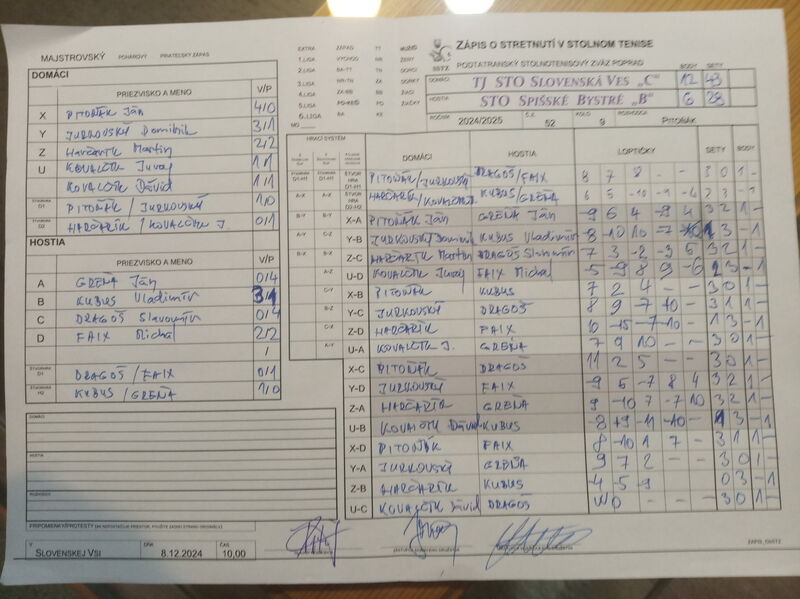 MAJSTROVSKÝ POHÁROVÝ PRIATEĽSKÝ ZÁPAS
DOMÁCI
PRIEZVISKO A MENO V/P
X PITOŇÁK Ján 4/0
Y JURKOVSKÝ Dominik 3/1
Z HARČARÍK Martin 2/2
U KOVALČÍK Juraj 1/1
KOVALČÍK Dávid 1/1
D1 PITOŇÁK / JURKOVSKÝ 1/0
D2 HARČARÍK / KOVALČÍK J. 0/1
HOSTIA
PRIEZVISKO A MENO V/P
A GREŇA Ján 0/4
B KUBUS Vladimír 3/1
C DRAGOŠ Slavomír 0/4
D FAIX Michal 2/2
/
D1 DRAGOŠ / FAIX 0/1
H2 KUBUS / GREŇA 1/0
DOMÁCI
HOSTIA
ROZHODCA
PRIPOMIENKY/PROTESTY
V SLOVENSKEJ VSI DŇA 8.12.2024 ČAS 10,00
EXTRA ZÁPAS TT MUŽI
1.LIGA VÝCHOD NR ŽENY
2.LIGA BA-TT DORCI
3.LIGA
4.LIGA
5.LIGA
6.LIGA BA KE
MO
SSTZ
ZÁPIS O STRETNUTÍ V STOLNOM TENISE
PODTATRANSKÝ STOLNOTENISOVÝ ZVÄZ POPRAD
BODY SETY
DOMÁCI TJ STO SLOVENSKÁ VES „C“ 12 43
HOSTIA STO SPIŠSKÉ BYSTRÉ „B“ 6 28
ROČNÍK 2024/2025 Č.Z. 52 KOLO 9 ROZHODCA PITOŇÁK
HRACÍ SYSTÉM DOMÁCI HOSTIA LOPTIČKY SETY BODY
PITOŇÁK/JURKOVSKÝ DRAGOŠ/FAIX 8 7 8 - - 3 0 1 -
HARČARÍK/KOVALČÍK KUBUS/GREŇA 6 5 -10 -9 -6 2 3 - 1
X-A PITOŇÁK Ján GREŇA Ján -9 6 4 -9 4 3 2 1 -
Y-B JURKOVSKÝ Dominik KUBUS Vladimír -8 -10 10 -7 1 3 - 1
Z-C HARČARÍK Martin DRAGOŠ Slavomír 7 3 -2 -3 6 3 2 1 -
U-D KOVALČÍK Juraj FAIX Michal -5 -9 8 -6 1 3 - 1
X-B PITOŇÁK KUBUS 7 2 4 - - 3 0 1 -
Y-C JURKOVSKÝ DRAGOŠ 8 9 -7 10 - 3 1 1 -
Z-D HARČARÍK FAIX 10 -15 -7 -10 - 1 3 - 1
U-A KOVALČÍK J. GREŇA 7 9 10 - - 3 0 1 -
X-C PITOŇÁK DRAGOŠ 11 2 5 - - 3 0 1 -
Y-D JURKOVSKÝ FAIX -9 5 -7 8 4 3 2 1 -
Z-A HARČARÍK GREŇA 9 -10 7 -7 10 3 2 1 -
U-B KOVALČÍK Dávid KUBUS -8 +9 -11 -10 - 1 3 - 1
X-D PITOŇÁK FAIX 8 -10 1 7 - 3 1 1 -
Y-A JURKOVSKÝ GREŇA 9 7 2 - - 3 0 1 -
Z-B HARČARÍK KUBUS -4 -5 -9 0 3 - 1
U-C KOVALČÍK Dávid DRAGOŠ WO - - - 3 0 1 -